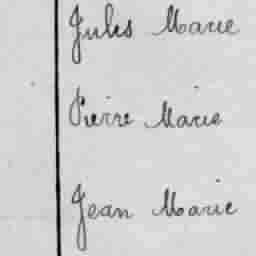 Jules Marie
Pierre Marie
Jean Marie